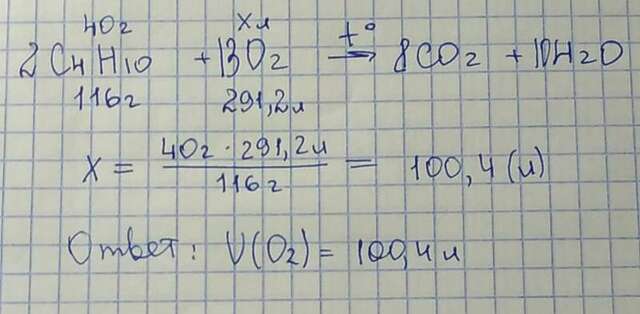 40г xл
2C4H10 + 13O2 t° → 8CO2 + 10H2O
116г 291,2л
x = 40г · 291,2л / 116г = 100,4 (л)
Ответ: V(O2) = 100,4 л